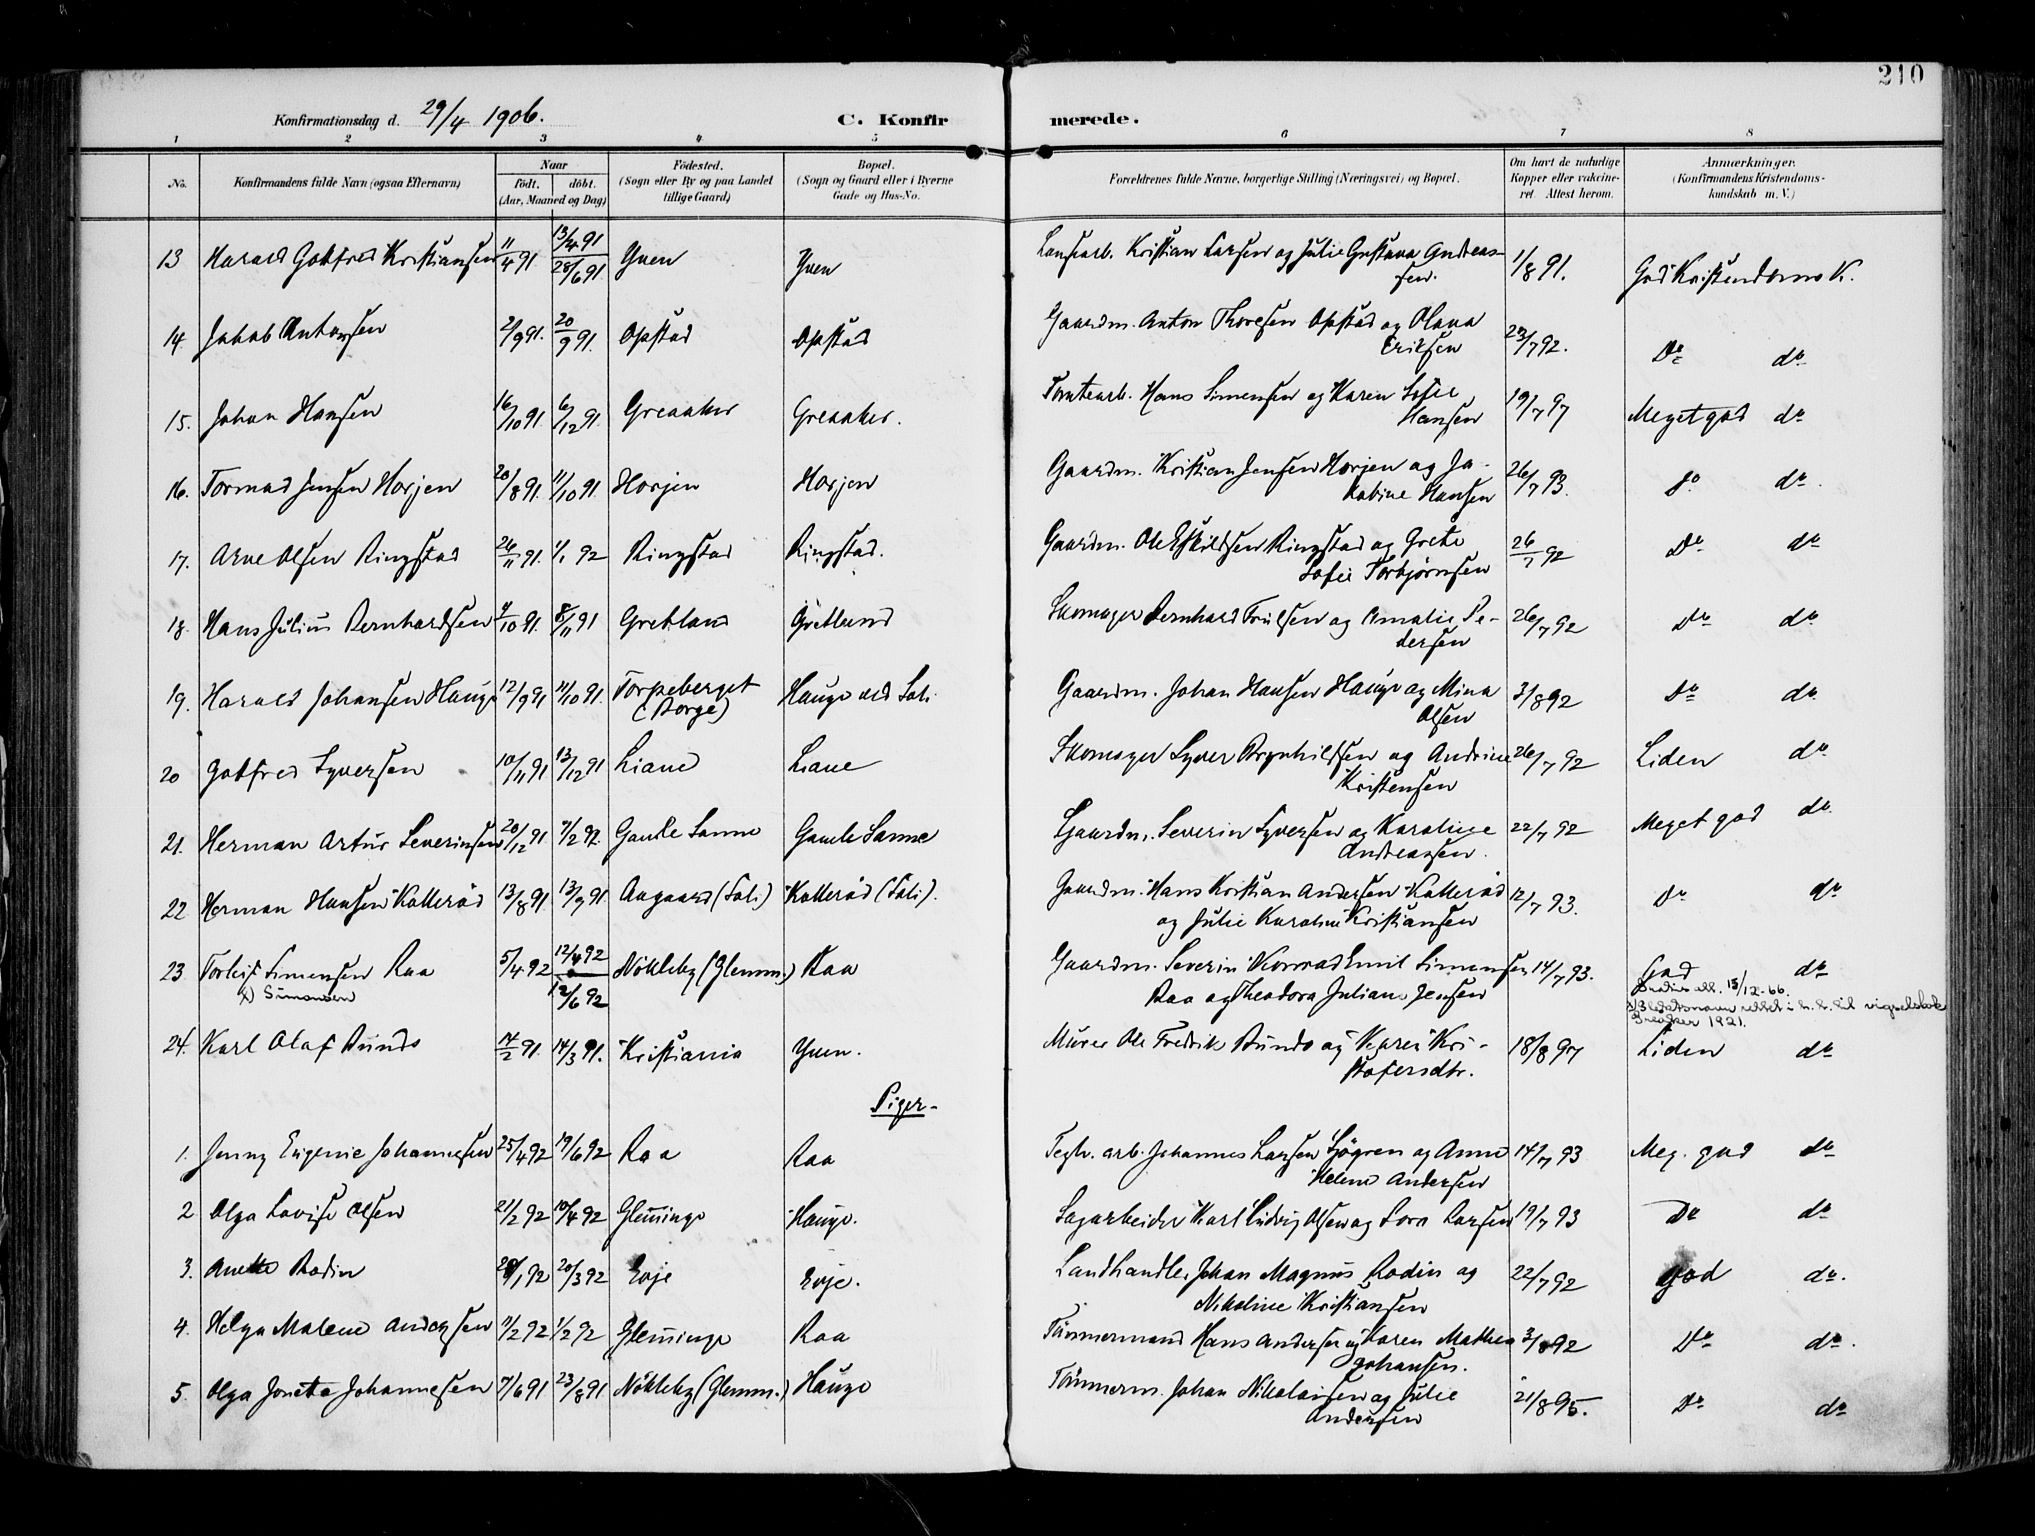 210
Konfirmationsdag d. 29/4 1906.
C. Konfirmerede.
1 2 3 4 5 6 7 8
No.
Konfirmandens fulde Navn (ogsaa Efternavn)
Naar
födt. döbt.
(Aar, Maaned og Dag)
Födested.
(Sogn eller By og paa Landet
tillige Gaard)
Bopæl.
(Sogn og Gaard eller i Byerne
Gade og Hus-No.
Forældrenes fulde Navne, borgerlige Stilling (Næringsvei) og Bopæl.
Om havt de naturlige
Kopper eller vakcine-
ret. Attest herom.
Anmærkninger.
(Konfirmandens Kristendoms-
kundskab m. V.)
13 Harald Gotfred Kristiansen 11/4 91 13/4 91 28/6 91 Yven Yven Kristian Larsen og Julie Gustava Andreas-
sen. 1/8 91. God Kristendoms K.
14 Jakob Antonsen 2/9 91. 20/9 91. Opstad Opstad Gaardm. Anton Thoresen Opstad og Olava
Eriksen 23/7 92. Do do
15. Johan Hansen 16/10 91. 6/12 91. Greaaker Greaaker. Tomtearb. Hans Simensen og Karen Sofie
Hansen 19/7 97 Meget god do
16. Tormod Jensen Horjen 20/8 91. 11/10 91. Horjen Horjen Gaardm. Kristian Jensen Horjen og Ja-
kobine Hansen 26/7 93. do do.
17. Arne Olsen Ringstad 26/11 91. 1/1 92 Ringstad Ringstad. Gaardm. Ole Eskildsen Ringstad og Grete
Sofie Torbjørnsen 26/7 92 Do do
18. Hans Julius Bernhardsen 4/10 91. 8/11 91 Gretland Gretland Skomager Bernhard Truelsen og Amalie Pe-
dersen 26/7 92 Do do
19. Harald Johansen Hauge 12/9 91 11/10 91. Torpeberget
(Borge) Hauge ved Soli Gaardm. Johan Hansen Hauge og Mina
Olsen 3/8 92 Do do
20 Gotfred Syversen 10/11 91 13/12 91 Liane Liane Skomager Syver Brynhildsen og Andrine
Kristensen 26/7 92 Liden do
21. Herman Artur Severinsen 20/12 91 7/2 92. Gamle Sanne Gamle Sanne Gaardm. Severin Syversen og Karoline
Andreassen. 22/7 92 Meget god do
22 Herman Hansen Kallerød 13/8 91 13/9 91. Aagaard (Soli) Kallerød (Soli). Gaardm. Hans Kristian Andersen Kallerød
og Julie Karoline Kristiansen 12/7 93. Do do
23 Torleif Simensen Raa
x) Simonsen 5/4 92 12/4 92 12/6 92 Nökleby (Glemm.) Raa Gaardm. Severin Konrad Emil Simensen
Raa og Theodora Juliane Jensen 14/7 93. God do
15/12-66.
Greaker 1921.
24. Karl Olaf Bundo 14/2 91. 14/3 91. Kristiania Yven. Murer Ole Fredrik Bundo og Karen Kri-
stofersdtr. 18/8 97 Liden do
Piger-
1. Jenny Eugenie Johannesen 25/4 92 19/6 92 Raa Raa Teglv. arb. Johannes Larsen Sjögren og Anne
Helene Andersen 14/7 93 Meg. god do
2 Olga Lovise Olsen 21/2 92 18/4 92 Glemminge Hauge. Sagarbeider Karl Ludvig Olsen og Lova Larsen 19/7 93 Do do
3. Anette Rodin 28/1 92 20/3 92 Evje Evje. Landhandler Johan Magnus Rodin og
Nikoline Kristiansen 22/7 92 god do.
4. Helga Malene Andersen 11/2 92 1/2 92 Glemminge Raa Tömmermand Hans Andersen og Karen Mathea
Johansen. 3/8 92 Do do.
5. Olga Jonette Johannesen 7/6 91 23/8 91 Nökleby (Glemm.) Hauge Tömmerm. Johan Nikolaisen og Julie
Andersen 21/8 95. Do do